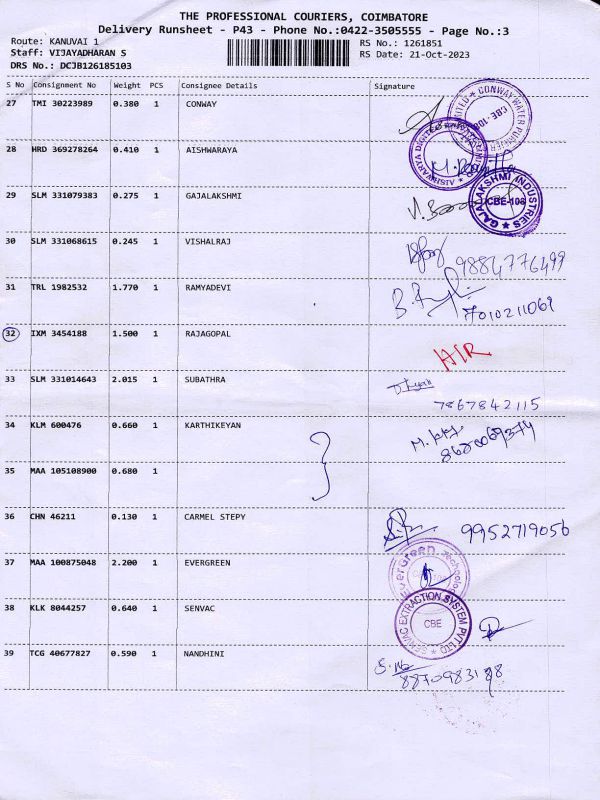 THE PROFESSIONAL COURIERS, COIMBATORE
Delivery Runsheet - P43 - Phone No.:0422-3505555 - Page No.:3
Route: KANUVAI 1
Staff: VIJAYADHARAN S
DRS No.: DCJB126185103
RS No.: 1261851
RS Date: 21-Oct-2023
S No Consignment No Weight PCS Consignee Details Signature
27 TMI 30223989 0.380 1 CONWAY
CONWAY WATER PURIFIER
CBE-108
28 HRD 369278264 0.410 1 AISHWARAYA
29 SLM 331079383 0.275 1 GAJALAKSHMI
GAJALAKSHMI INDUSTRIES
CBE-108
30 SLM 331068615 0.245 1 VISHALRAJ
9884776499
31 TRL 1982532 1.770 1 RAMYADEVI
7010211069
32 IXM 3454188 1.500 1 RAJAGOPAL
33 SLM 331014643 2.015 1 SUBATHRA
7867842115
34 KLM 600476 0.660 1 KARTHIKEYAN
35 MAA 105108900 0.680 1
36 CHN 46211 0.130 1 CARMEL STEPY
9952719056
37 MAA 100875048 2.200 1 EVERGREEN
EverGreen Technology
38 KLK 8044257 0.640 1 SENVAC
SENVAC EXTRACTION SYSTEM PVT LTD
CBE
39 TCG 40677827 0.590 1 NANDHINI